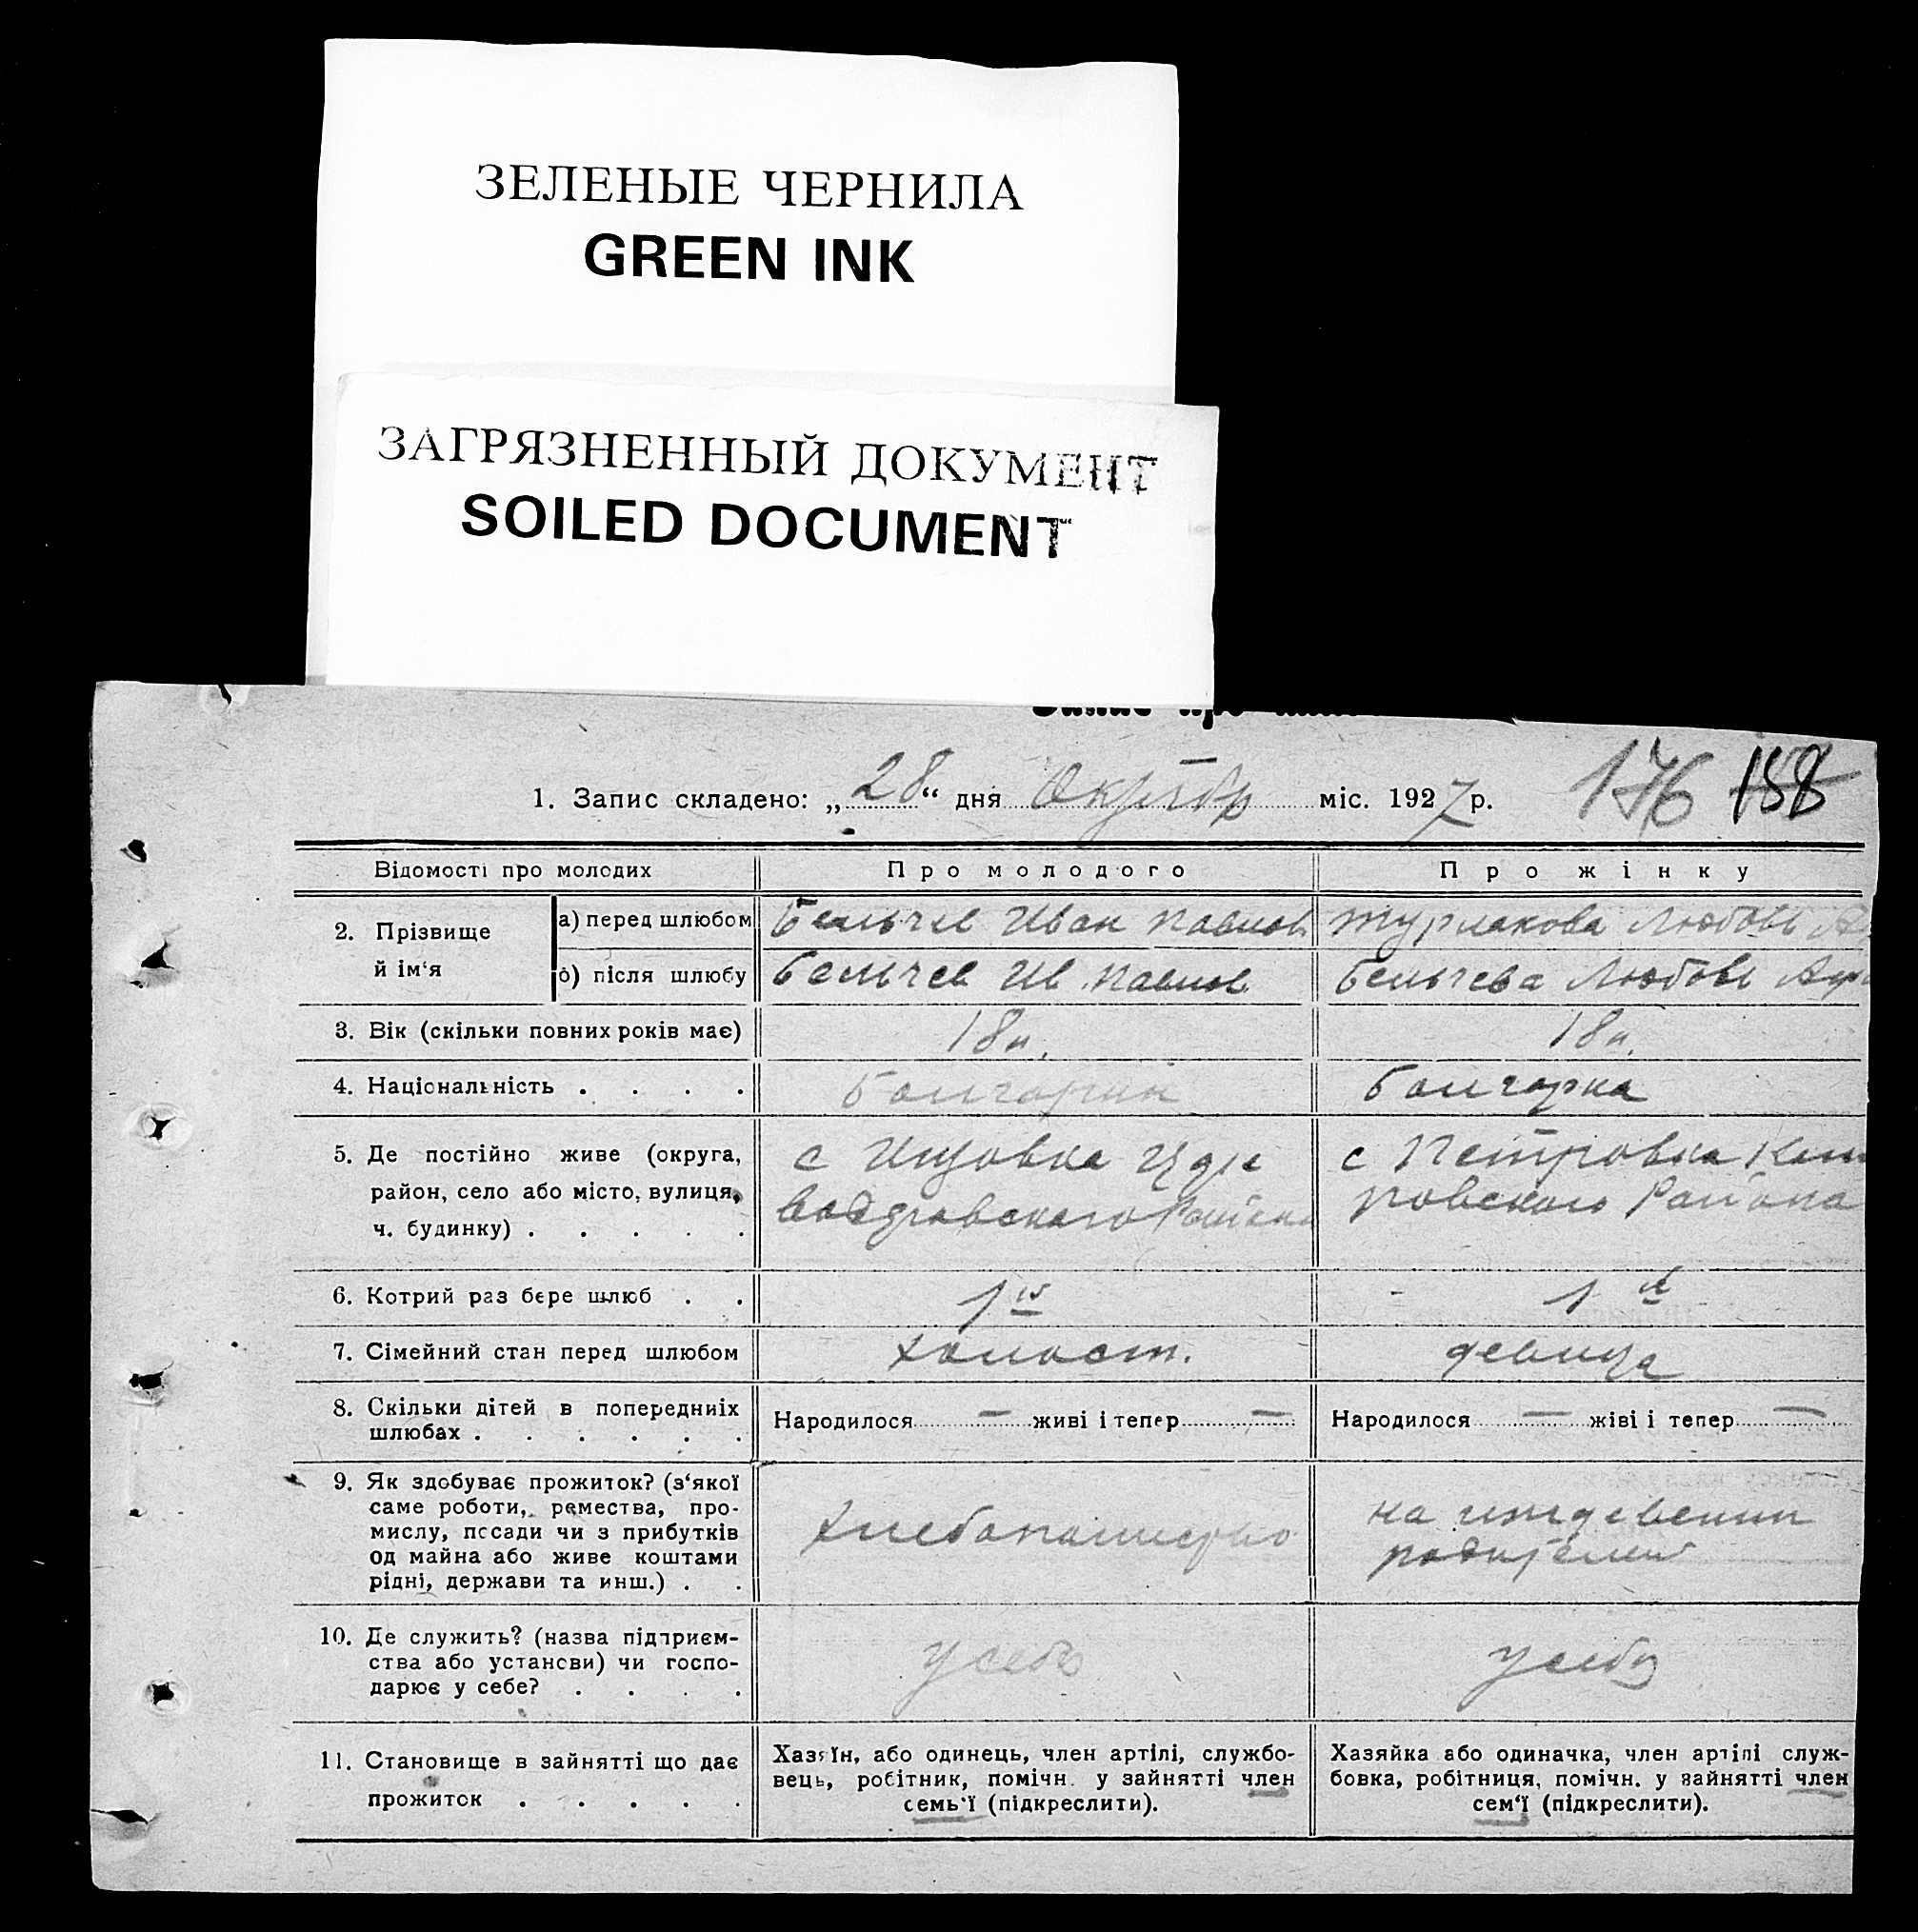 ЗЕЛЕНЫЕ ЧЕРНИЛА
GREEN INK
ЗАГРЯЗНЕННЫЙ ДОКУМЕНТ
SOILED DOCUMENT
1. Запис складено: „28“ дня Октябр міс. 1927 р. 176 188
Відомості про молодих Про молодого Про жінку
2. Прізвище й ім‘я
а) перед шлюбом Бельчев Иван Павлов Журлакова Любовь
б) після шлюбу Бельчев Ив. Павлов Бельчева Любовь
3. Вік (скільки повних років має) 18 л. 18 л.
4. Національність . . . . Болгарин Болгарка
5. Де постійно живе (округа, с с Петровка
район, село або місто, вулиця, Района Района
ч. будинку) . . . . .
6. Котрий раз бере шлюб . . 1й 1й
7. Сімейний стан перед шлюбом холост. девица
8. Скільки дітей в попередниіх Народилося — живі і тепер — Народилося — жіві і тепер —
шлюбах . . . . . .
9. Як здобуває прожиток? (з‘якої
саме роботи, ремества, про- на иждевении
мислу, посади чи з прибутків хлебопашество
од майна або живе коштами родителей
рідні, держави та инш.) . .
10. Де служить? (назва підприєм-
ства або установи) чи госпо- у себя у себя
дарює у себе? . . . .
11. Становище в зайнятті що дає
прожиток . . . . .
Хазяїн, або одинець, член артілі, службо-
вець, робітник, помічн. у зайнятті член
семь‘ї (підкреслити).
Хазяйка або одиначка, член артілі служ-
бовка, робітниця, помічн. у зайнятті член
сем‘ї (підкреслити).